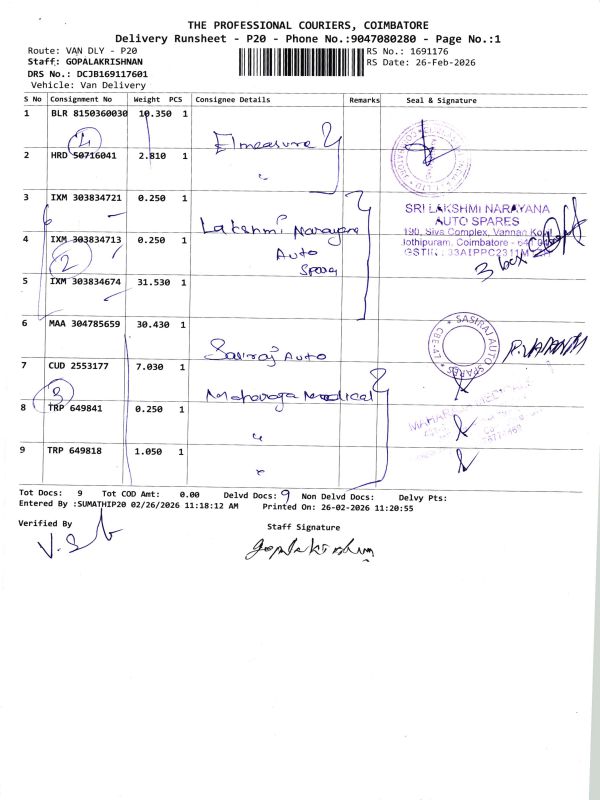 THE PROFESSIONAL COURIERS, COIMBATORE
Delivery Runsheet - P20 - Phone No.:9047080280 - Page No.:1
Route: VAN DLY - P20
RS No.: 1691176
Staff: GOPALAKRISHNAN
RS Date: 26-Feb-2026
DRS No.: DCJB169117601
Vehicle: Van Delivery
S No Consignment No Weight PCS Consignee Details Remarks Seal & Signature
1 BLR 8150360030 10.350 1
4
Elmeasure
2 HRD 50716041 2.810 1 "
3 IXM 303834721 0.250 1
SRI LAKSHMI NARAYANA
AUTO SPARES
190, Siva Complex, Vannan Kovil
Jothipuram, Coimbatore - 641
Lakshmi Narayana
4 IXM 303834713 0.250 1 Auto
2
3 box
5 IXM 303834674 31.530 1
6 MAA 304785659 30.430 1
SASIRAJ AUTO SPARES
CBE-47
Sasiraj Auto
7 CUD 2553177 7.030 1
3
Maharaja Medical
8 TRP 649841 0.250 1
"
9 TRP 649818 1.050 1
"
Tot Docs: 9 Tot COD Amt: 0.00 Delvd Docs: 9 Non Delvd Docs: Delvy Pts:
Entered By :SUMATHIP20 02/26/2026 11:18:12 AM Printed On: 26-02-2026 11:20:55
Verified By
Staff Signature
Gopalakrishnan